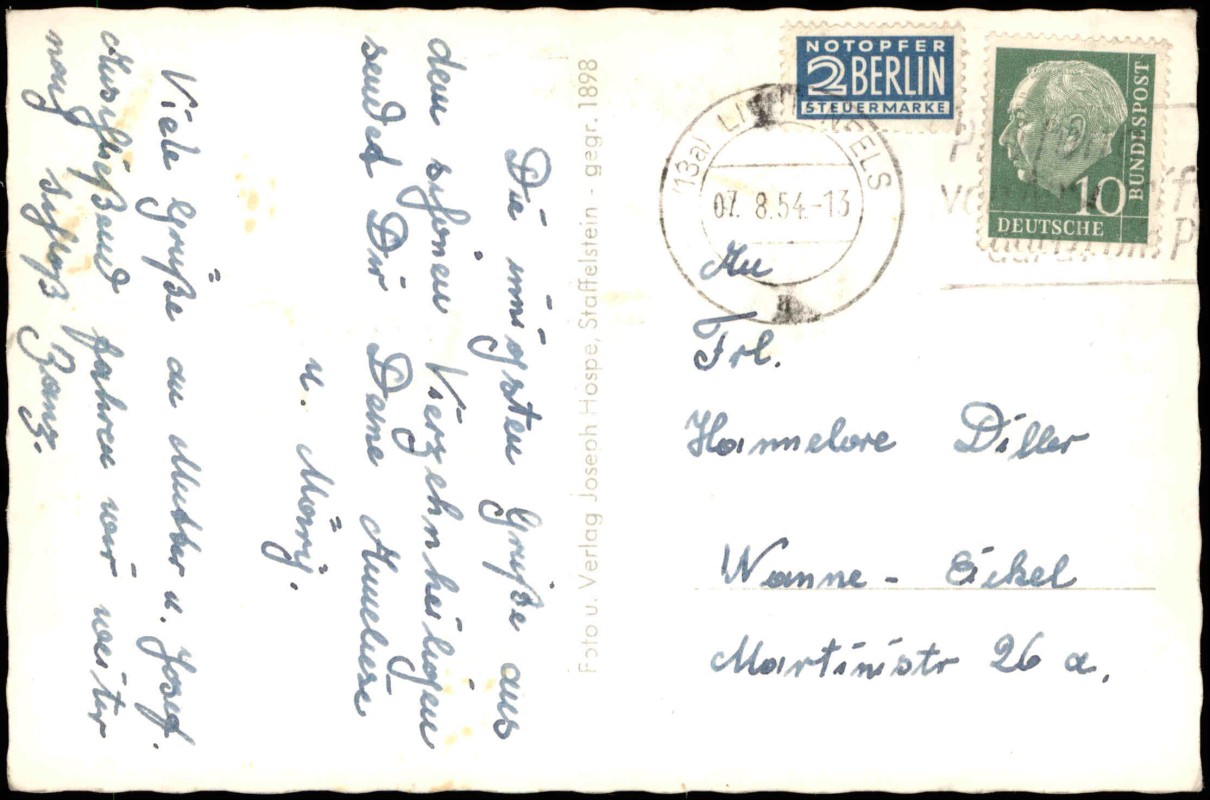 Die innigsten Grüße aus
dem schönen Vierzehnheiligen
sendet Dir Deine Anneliese
u.
Viele Grüße an Mutter u. Josef.
Anschließend fahren wir weiter
nach Schloß Banz.
Foto u. Verlag Joseph Hospe, Staffelstein - gegr. 1898
NOTOPFER
2 BERLIN
STEUERMARKE
DEUTSCHE
BUNDESPOST
10
(13a) LICHTENFELS
07. 8.54.-13
An
Frl.
Hannelore Diller
Wanne - Eickel
Martinistr 26 a.